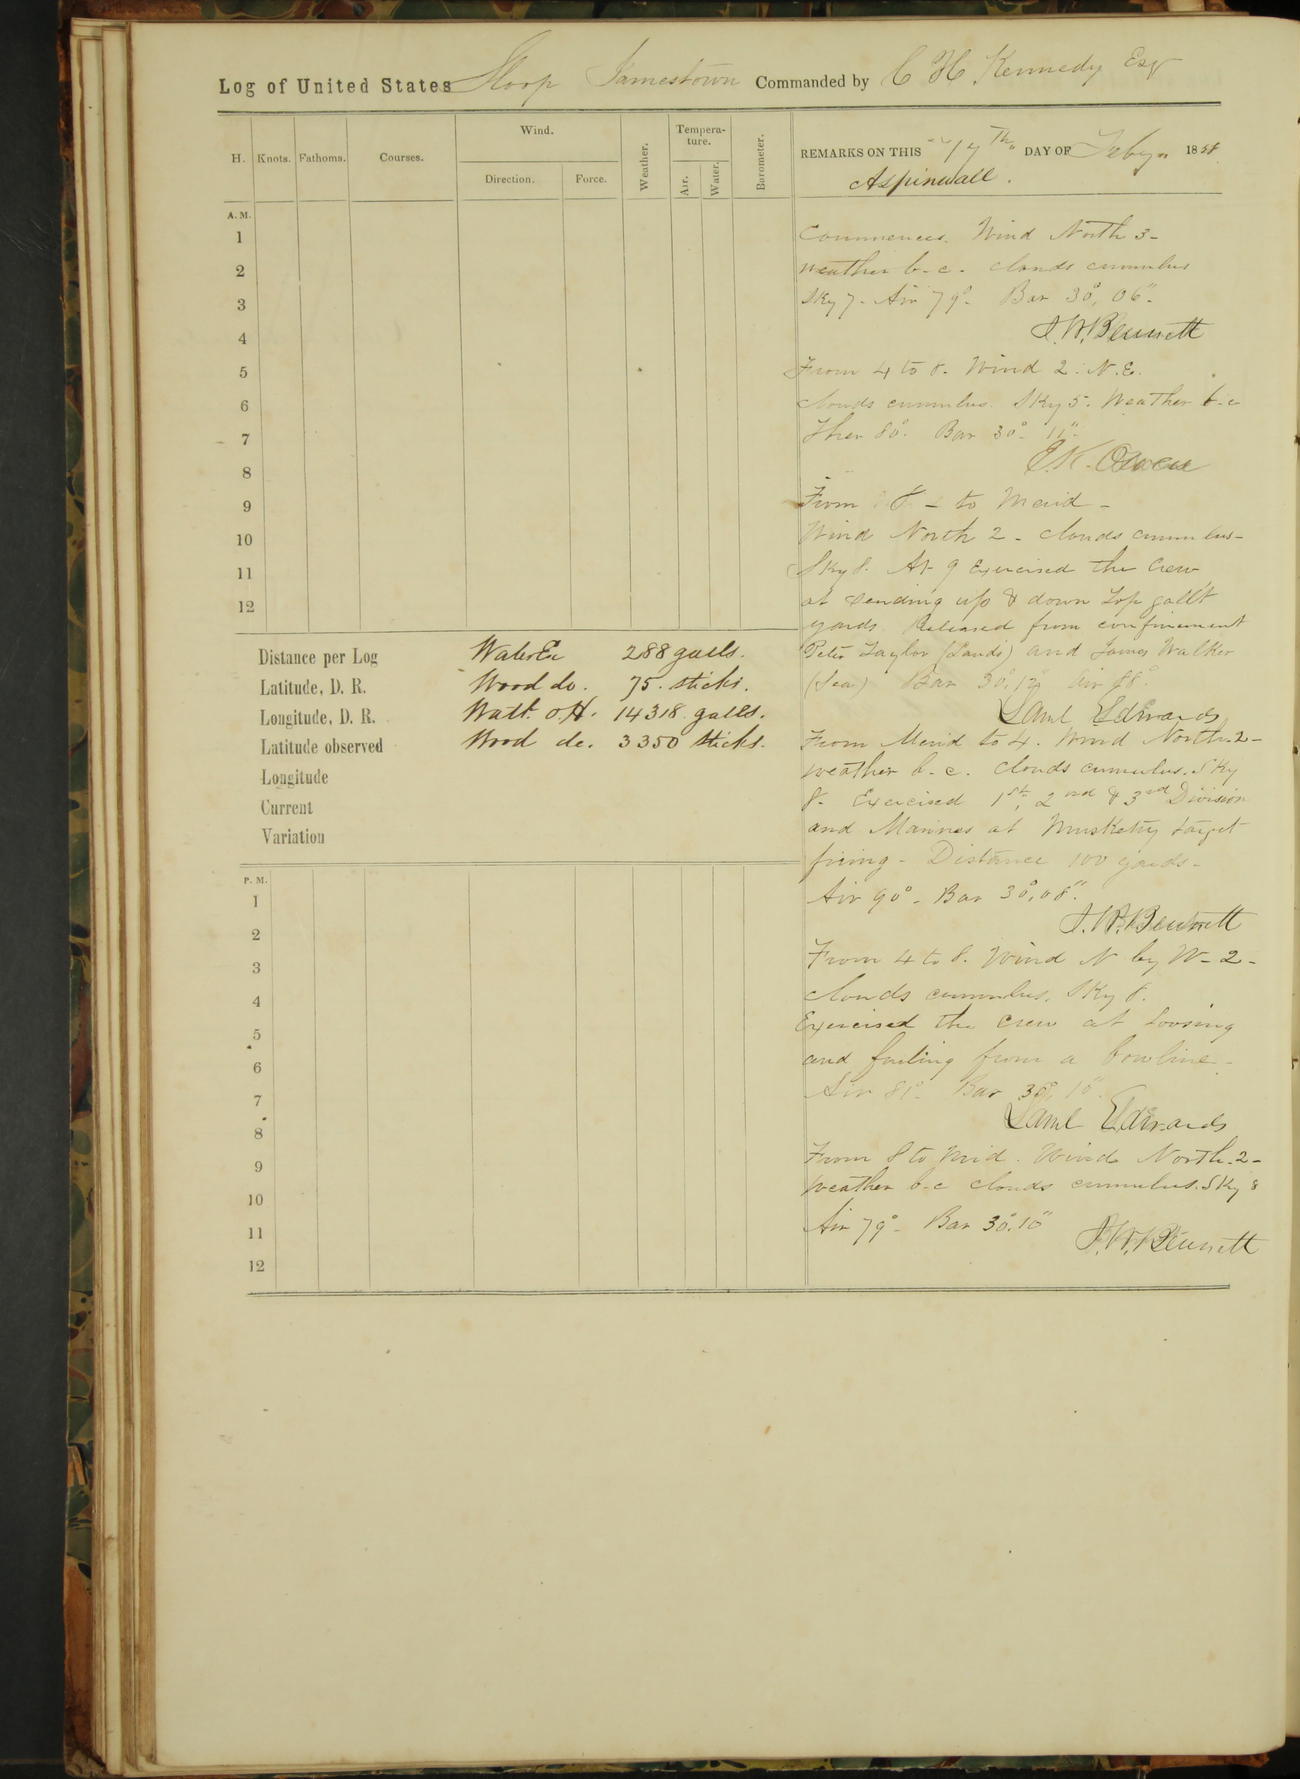 Log of United States Sloop Jamestown Commanded by C H Kennedy Esqr
H. Knots. Fathoms. Courses. Wind. Direction. Force. Weather. Tempera-ture. Air. Water. Barometer.
REMARKS ON THIS 17th DAY OF Feby 1858
Aspinwall.
A. M.
1
2
3
4
5
6
7
8
9
10
11
12
Commences. Wind North 3-
weather b-c. clouds cumulus
Sky 7- Air 79°- Bar 30°, 06"-
J.W. Bennett
From 4 to 8. Wind 2. N.E.
clouds cumulus. Sky 5. Weather b-c
Ther 80°. Bar 30°. 11"-
E.K. Owen
From 8 - to Merid -
Wind North 2 - clouds cumulus-
Sky 8. At 9 Exercised the Crew
at sending up & down Top gall't
yards. Released from confinement
Peter Taylor (Lands) and James Walker
(Sea) Bar 30°. Air 88°.
Saml Edwards
Distance per Log Water Ex 288 galls.
Latitude, D. R. Wood do. 75. sticks.
Longitude, D. R. Watr. O.H. 14318 galls.
Latitude observed Wood do. 3350 sticks.
Longitude
Current
Variation
From Merid to 4. Wind North-2-
weather b-c. clouds cumulus. Sky
8. Exercised 1st, 2nd & 3rd Division
and Marines at Musketry target
firing - Distance 100 yards-
Air 90°- Bar 30°.08".
J.W. Bennett
P. M.
1
2
3
4
5
6
7
8
9
10
11
12
From 4 to 8. Wind N by W- 2-
clouds cumulus. Sky 8.
Exercised the crew at loosing
and furling from a bowline-
Air 81°- Bar 30°, 10".
Saml Edwards
From 8 to Mid. Wind North-2-
weather b-c clouds cumulus. Sky 8
Air 79°- Bar 30°.10"
J.W. Bennett